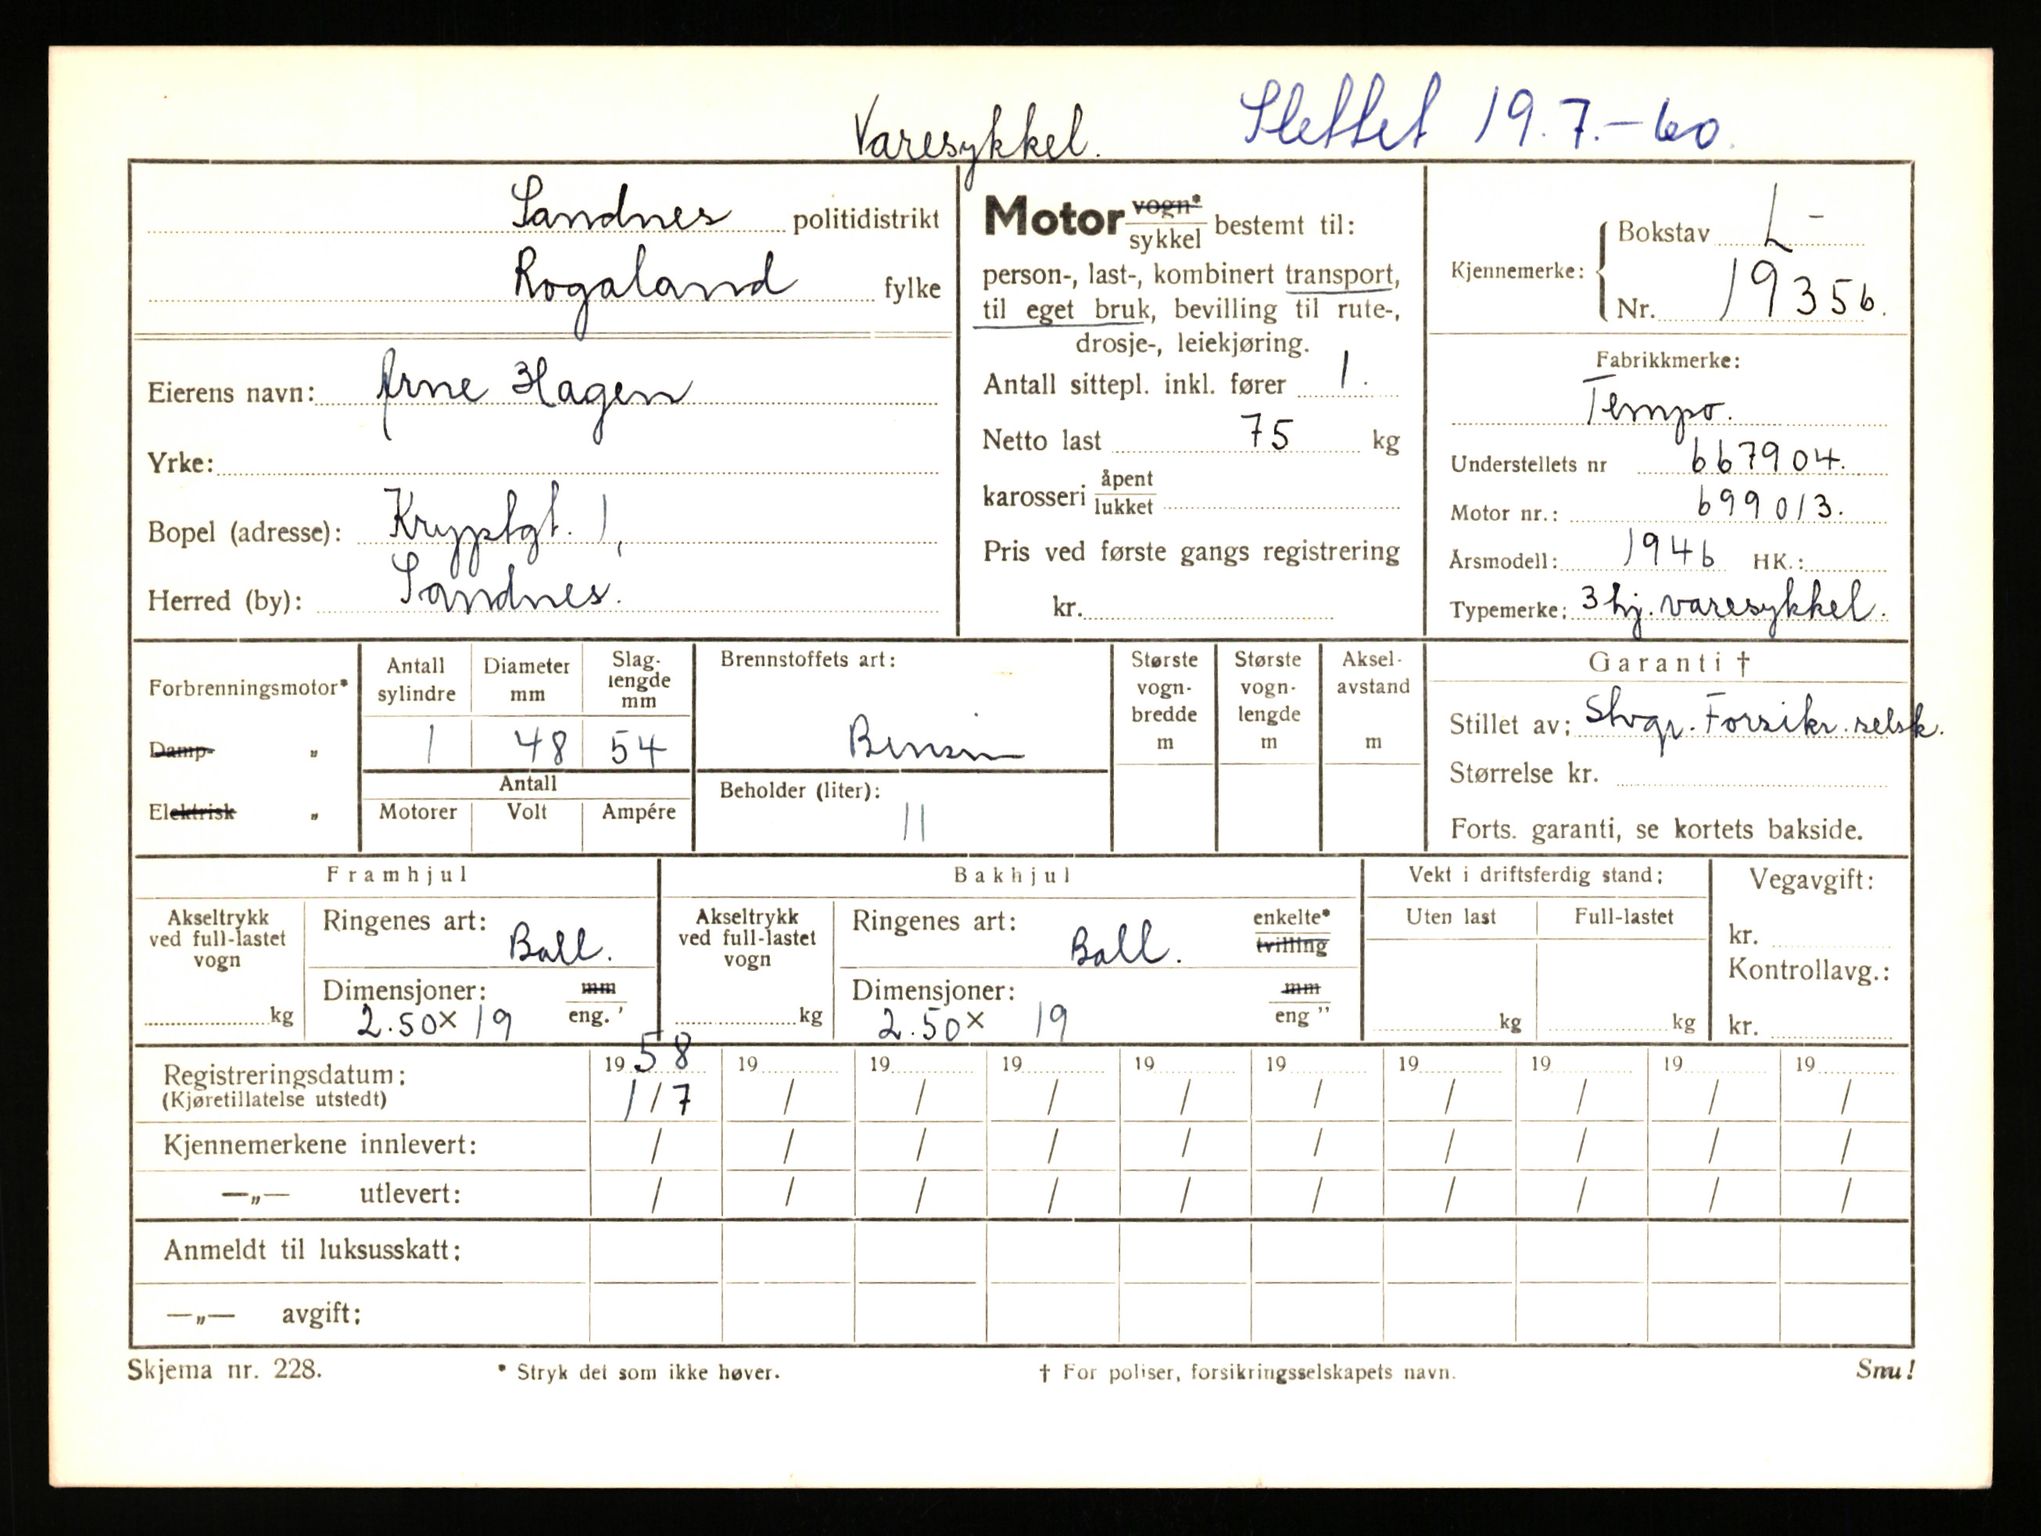 Varesykkel. Slettet 19.7.-60.
Sandnes politidistrikt
Rogaland fylke
Eierens navn: Arne Hagen
Yrke:
Bopel (adresse):
Herred (by): Sandnes.
Motor vogn* sykkel bestemt til:
person-, last-, kombinert transport,
til eget bruk, bevilling til rute-,
drosje-, leiekjøring.
Antall sittepl. inkl. fører 1.
Netto last 75 kg
karosseri åpent lukket
Pris ved første gangs registrering
kr.
Kjennemerke: Bokstav L-
Nr. 19356.
Fabrikkmerke:
Tempo.
Understellets nr 667904.
Motor nr.: 699013.
Årsmodell: 1946 HK.:
Typemerke: 3 hj. varesykkel.
Forbrenningsmotor*
Damp- „
Elektrisk „
Antall sylindre
Diameter mm
Slaglengde mm
1 48 54
Antall
Motorer Volt Ampére
Brennstoffets art:
Bensin
Beholder (liter):
11
Største vognbredde m
Største vognlengde m
Akselavstand m
Garanti †
Stillet av: Stvgr. Forsikr. selsk.
Størrelse kr.
Forts. garanti, se kortets bakside.
Framhjul
Akseltrykk
ved full-lastet
vogn
kg
Ringenes art:
Ball.
Dimensjoner: mm
2.50 x 19 eng. '
Bakhjul
Akseltrykk
ved full-lastet
vogn
kg
Ringenes art: enkelte*
Ball. tvilling
Dimensjoner: mm
2.50 x 19 eng "
Vekt i driftsferdig stand:
Uten last Full-lastet
kg kg
Vegavgift:
kr.
Kontrollavg.:
kr.
Registreringsdatum: 19 58 19 19 19 19 19 19 19 19 19
(Kjøretillatelse utstedt) 1/7 / / / / / / / / /
Kjennemerkene innlevert: / / / / / / / / / /
—„— utlevert: / / / / / / / / / /
Anmeldt til luksusskatt:
—„— avgift:
Skjema nr. 228. * Stryk det som ikke høver. † For poliser, forsikringsselskapets navn. Snu!